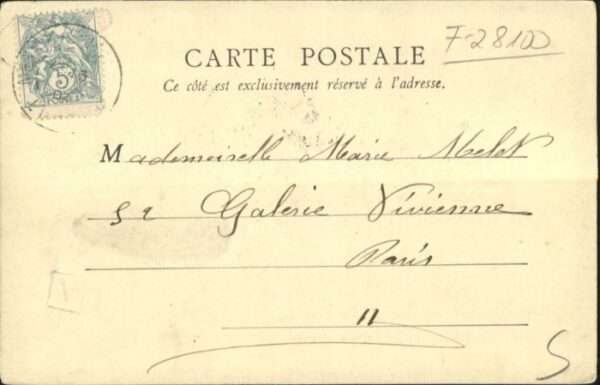 F-28100
CARTE POSTALE
Ce côté est exclusivement réservé à l'adresse.
Mademoiselle Marie Melot
52 Galerie Vivienne
Paris
11
5